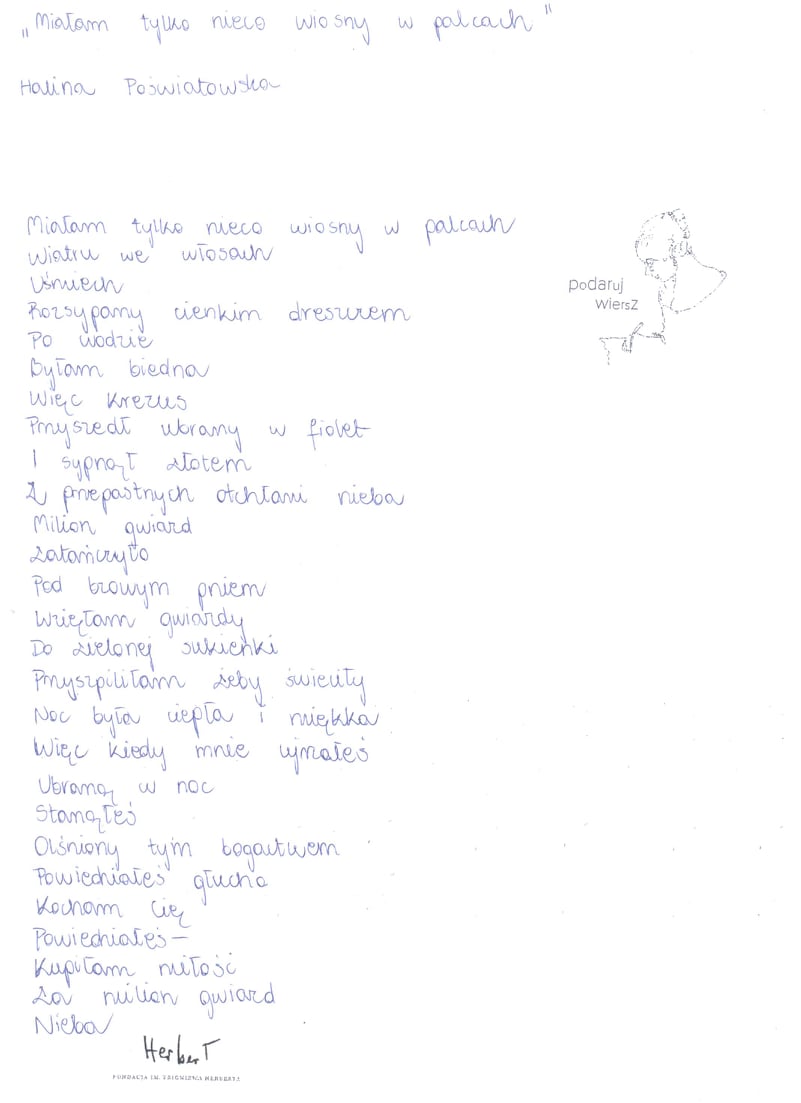 „Miałam tylko nieco wiosny w palcach"
Halina Poświatowska
Miałam tylko nieco wiosny w palcach
Wiatru we włosach
Uśmiech
Rozsypany cienkim dreszczem
Po wodzie
Byłam biedna
Więc Krezus
Przyszedł ubrany w fiolet
I sypnął złotem
Z przepastnych otchłani nieba
Milion gwiazd
Zatańczyło
Pod brzozowym pniem
Wzięłam gwiazdy
Do zielonej sukienki
Przyszpiliłam żeby świeciły
Noc była ciepła i miękka
Więc kiedy mnie ujrzałeś
Ubraną w noc
Stanąłeś
Olśniony tym bogactwem
Powiedziałeś głucho
Kocham cię
Powiedziałeś –
Kupiłam miłość
Za milion gwiazd
Nieba
podaruj
wiersz
HerberT
FUNDACJA IM. ZBIGNIEWA HERBERTA